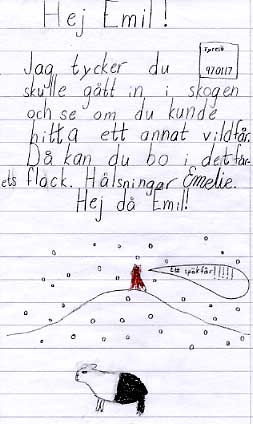 Hej Emil!
Jag tycker du
skulle gått in i skogen
och se om du kunde
hitta ett annat vildfår.
Då kan du bo i det får-
ets flock. Hälsningar Emelie.
Hej då Emil!
970117
Ett spökfår!!!!!